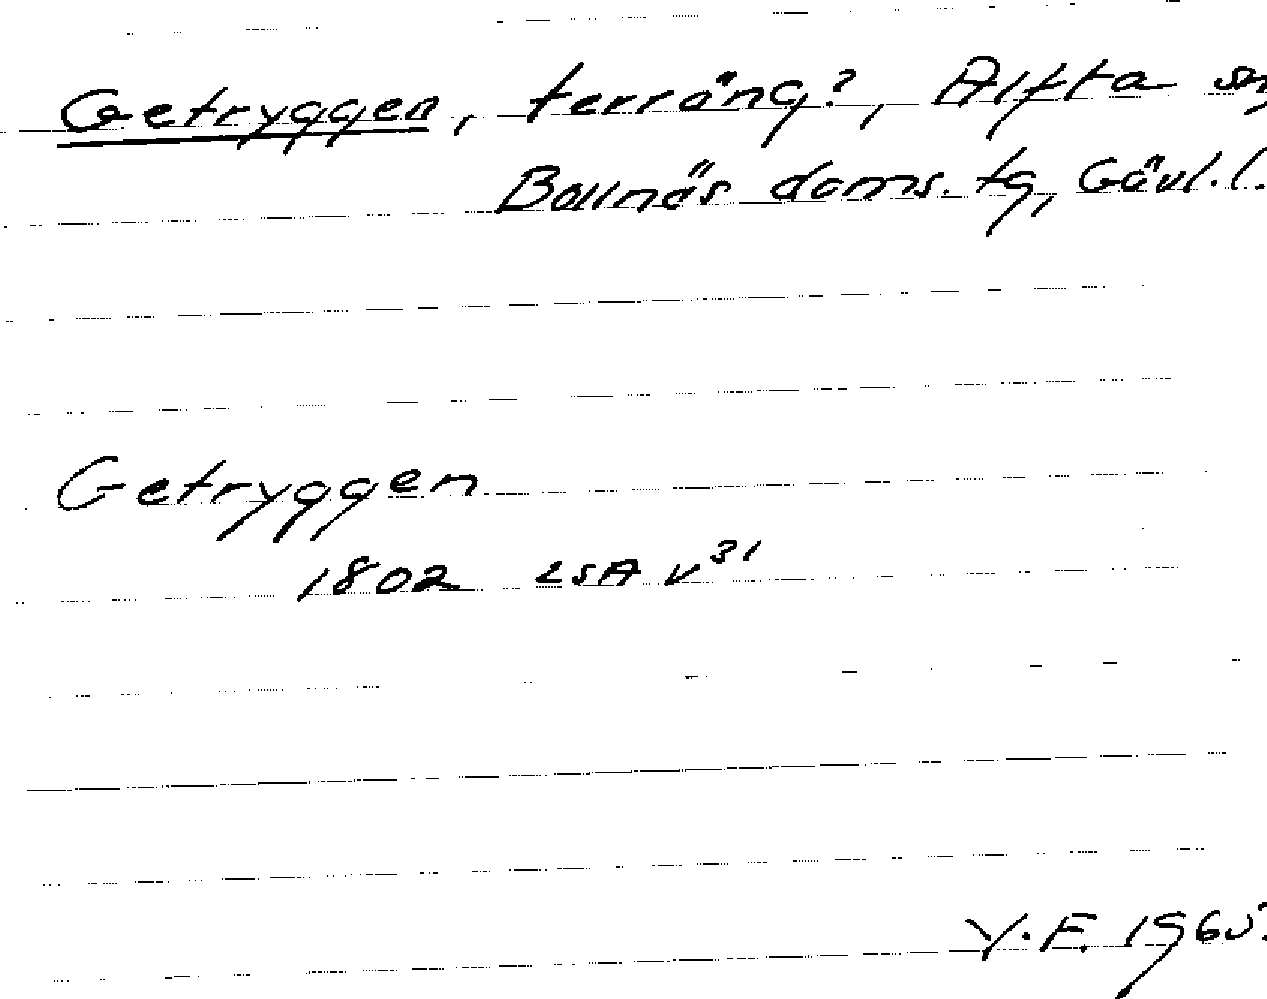 Getryggen, terräng?, Alfta sn,
Bollnäs doms. tg, Gävl. l.
Getryggen
1802 LSA v³¹
Y. F. 1965.